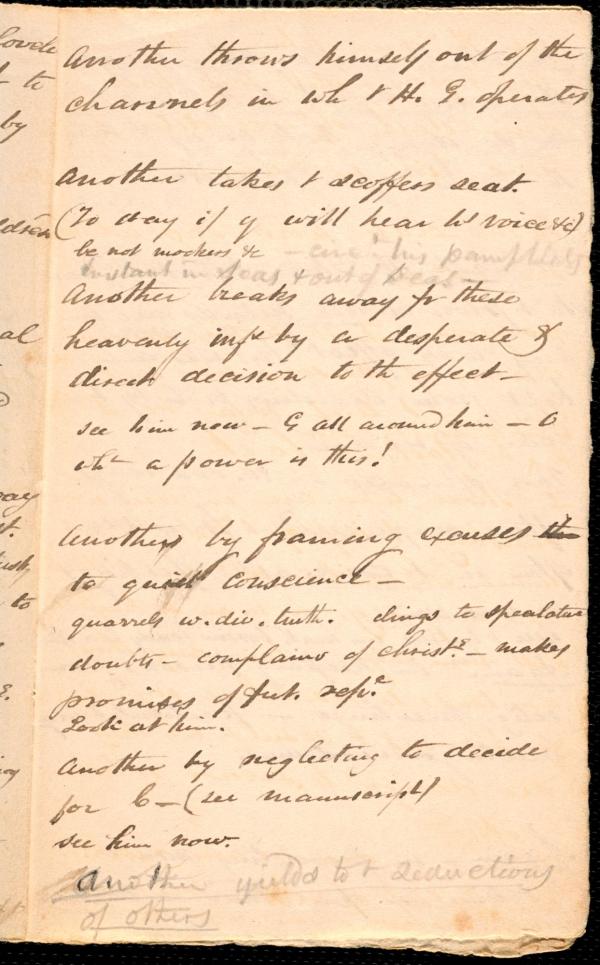 Another throws himself out of the
channels in wh t H. G. operates
Another takes t scoffers seat.
(To day if y will hear hs voice &c)
be not mockers &c – his pamphlets
instant in seas & out of seas –
Another breaks away fr these
heavenly infs by a desperate &
direct decision to th effect –
see him now – G all around him – O
wht a power is this!
Another by framing excuses
to quiet conscience –
quarrels w. div. truth. clings to
doubts – complains of christs – makes
promises of fut. repe
Look at him.
Another by neglecting to decide
for C – (see manuscript)
see him now.
Another yields to t seductions
of others
lovele
to
by
al
ay
st.
to